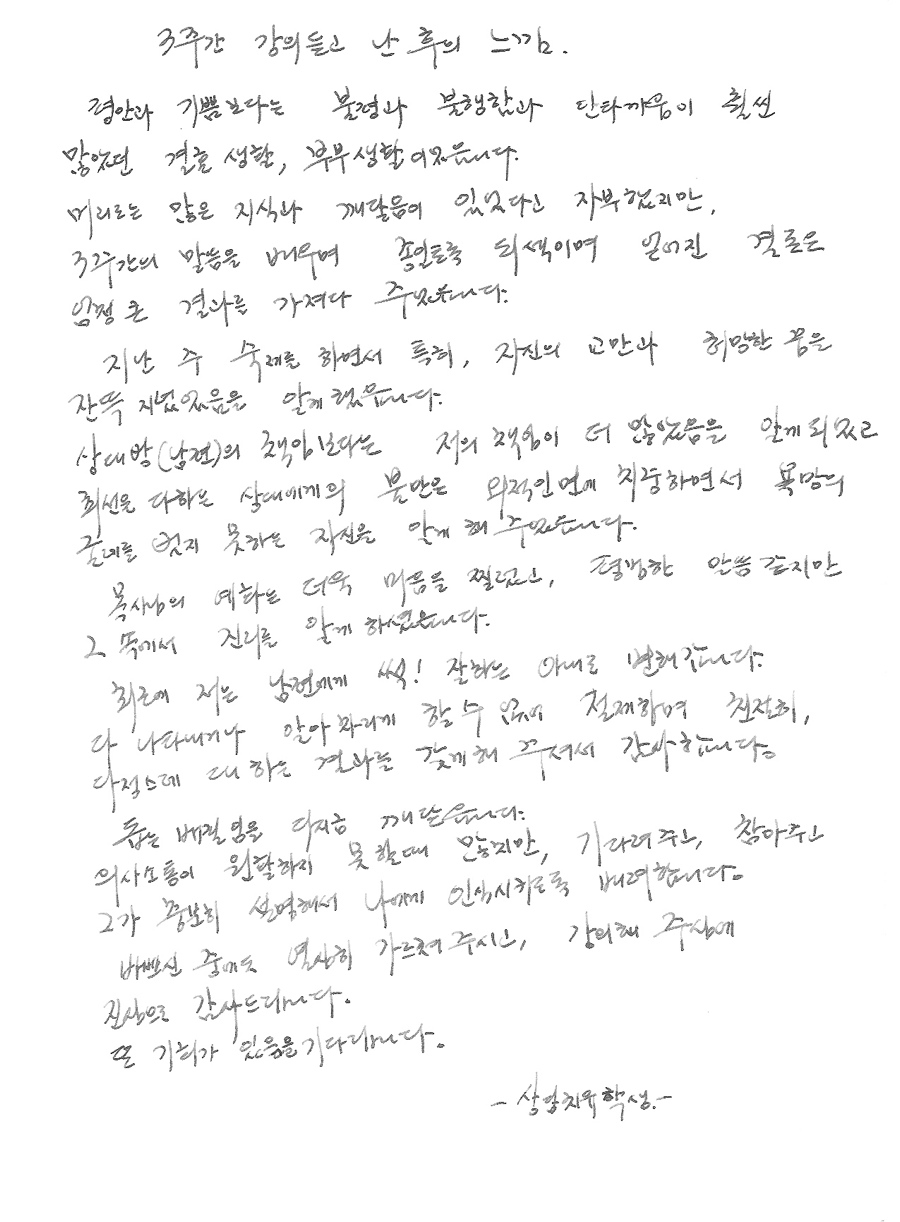 3주간 강의듣고 난 후의 느낌.
평안과 기쁨보다는 불평과 불행함과 안타까움이 훨씬
많았던 결혼생활, 부부생활이었습니다.
머리로는 많은 지식과 깨달음이 있었다고 자부했지만,
3주간의 말씀을 배우며 종일토록 되색이며 얻어진 결론은
엄청 큰 결과를 가져다 주었습니다.
지난 주 숙제를 하면서 특히, 자신의 교만과 허망한 꿈을
잔뜩 지녔었음을 알게 했습니다.
상대방(남편)의 책임보다는 저의 책임이 더 많았음을 알게되었고
최선을 다하는 상대에게의 불만은 외적인면에 치중하면서 욕망의
굴레를 벗지 못하는 자신을 알게 해 주었습니다.
목사님의 예화는 더욱 마음을 찔렀고, 평범한 말씀같지만
그 속에서 진리를 알게 하셨습니다.
최근에 저는 남편에게 썩! 잘하는 아내로 변해갑니다.
다 나타내거나 알아차리게 할 수 없어 절제하며 친절히,
대하는 결과를 갖게해 주셔서 감사합니다.
돕는 배필임을 다지금 깨달습니다.
의사소통이 원활하지 못할때 많지만, 기다려주고, 참아주고
그가 충분히 설명해서 나에게 인식시키도록 배려합니다.
바쁘신 중에도 열심히 가르쳐주시고, 강의해 주심에
진심으로 감사드립니다.
또 기회가 있음을 기다립니다.
- 상담치유학생.-